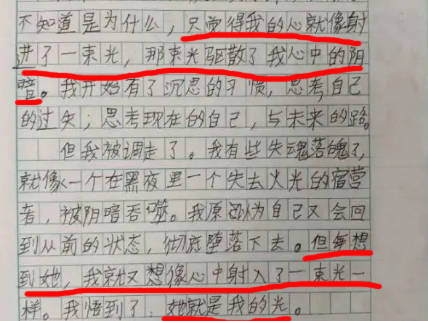 不知道是为什么，只觉得我的心就像射
进了一束光，那束光驱散了我心中的阴
暗。我开始有了沉思的习惯，思考自己
的过失；思考现在的自己，与未来的路。
但我被调走了。我有些失魂落魄了，
就像一个在黑夜里一个失去火光的宿营
者，被阴暗吞噬。我原以为自己又会回
到从前的状态，彻底堕落下去。但每想
到她，我就又想像心中射入了一束光一
样。我悟到了，她就是我的光。